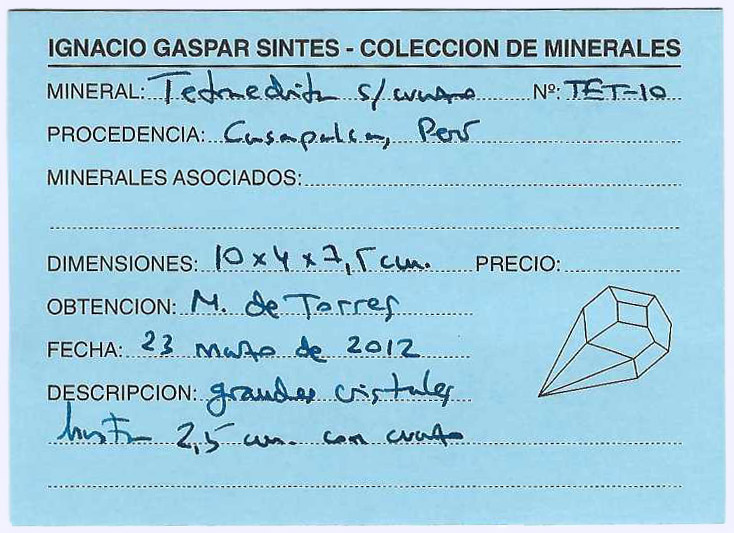 IGNACIO GASPAR SINTES - COLECCION DE MINERALES
MINERAL: Tetraedrita s/cuarzo Nº: TET-10
PROCEDENCIA: Casapalca, Perú
MINERALES ASOCIADOS:
DIMENSIONES: 10 x 4 x 7,5 cm. PRECIO:
OBTENCION: M. de Torres
FECHA: 23 marzo de 2012
DESCRIPCION: grandes cristales
hasta 2,5 cm. con cuarzo